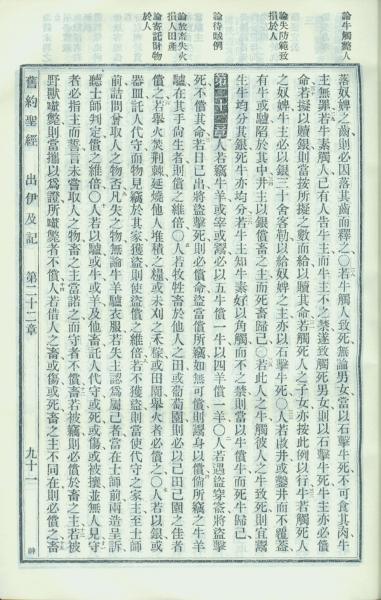 論牛觸斃人
論失防範致
損於人
論待賊例
論放畜失火
損人田產
論寄託財物
於人
落奴婢之齒則必因落其齒而釋之〇若牛觸人致死無論男女當以石擊牛死不可食其肉牛
主無罪若牛素觸人已有人告牛主而牛主不之禁遂致觸死男女則以石擊牛死牛主亦必償
命若擬以贖銀則當按所擬之數而給以贖其命若觸死人之子女亦按此例以行牛若觸死人
之奴婢牛主必以銀三十舍客勒給奴婢之主亦以石擊牛死〇人若啟井或鑿井而不覆蓋
有牛或驢陷於其中井主以銀償畜之主而死畜歸己〇若此人之牛觸彼人之牛致死則宜鬻
生牛均分其銀死牛亦均分若牛主知牛素好以角觸而不之禁則當以牛償牛而死牛歸己
第二十二章 人若竊牛羊或宰或鬻必以五牛償一牛以四羊償一羊〇人若遇盜穿窬將盜擊
死不償其命若日已出將盜擊死則必償命盜當償所竊如無可償則鬻身以償倘所竊之牛羊
驢在其手尚生者則償之維倍〇人若牧牲畜於他人之田或葡萄園則必以己田己園之佳者
償之若舉火焚荊棘延燒他人堆積之糧或未刈之禾稼或田間舉火者必償之〇人若以銀或
器皿託人代守而物見竊於其家獲盜則使盜償之維倍若不獲盜則當使代守之家主至士師
前詰問曾取人之物否凡失之物無論牛羊驢衣服若失主認為屬己者當在士師前兩造呈訴
聽士師判定償之維倍〇人若以驢或牛或羊及他畜託人代守或死或傷或被擄並無人見守
者必指主而誓言未嘗取人之物畜之主當諾之而守者不償畜若被竊則必償於畜之主若被
野獸囓斃則當攜以為證所囓斃者不償人若借人之畜或傷或死畜之主不同在則必償之畜
舊約聖經 出伊及記 第二十二章 九十一